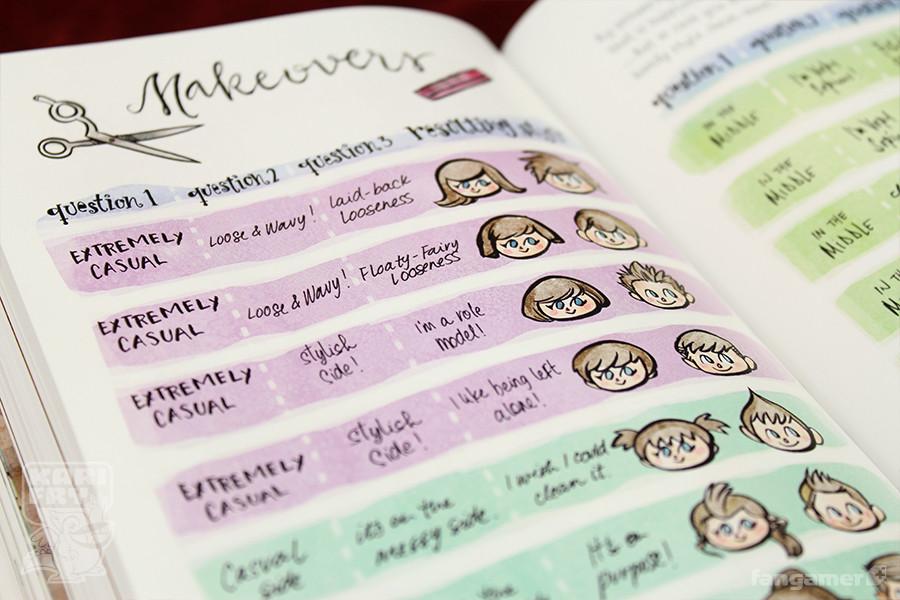 Makeovers
question 1 question 2 question 3 resulting
EXTREMELY
CASUAL
Loose & Wavy!
laid-back
Looseness
EXTREMELY
CASUAL
Loose & Wavy!
Floaty-Fairy
Looseness
EXTREMELY
CASUAL
stylish
side!
i'm a role
model!
EXTREMELY
CASUAL
stylish
side!
I like being left
alone!
Casual
side
it's on the
messy side.
I wish I could
clean it.
It's on
purpose!
question 1 question 2
IN THE
MIDDLE
IN THE
MIDDLE
IN THE
MIDDLE
IN THE
KARI
FRY
fangamer